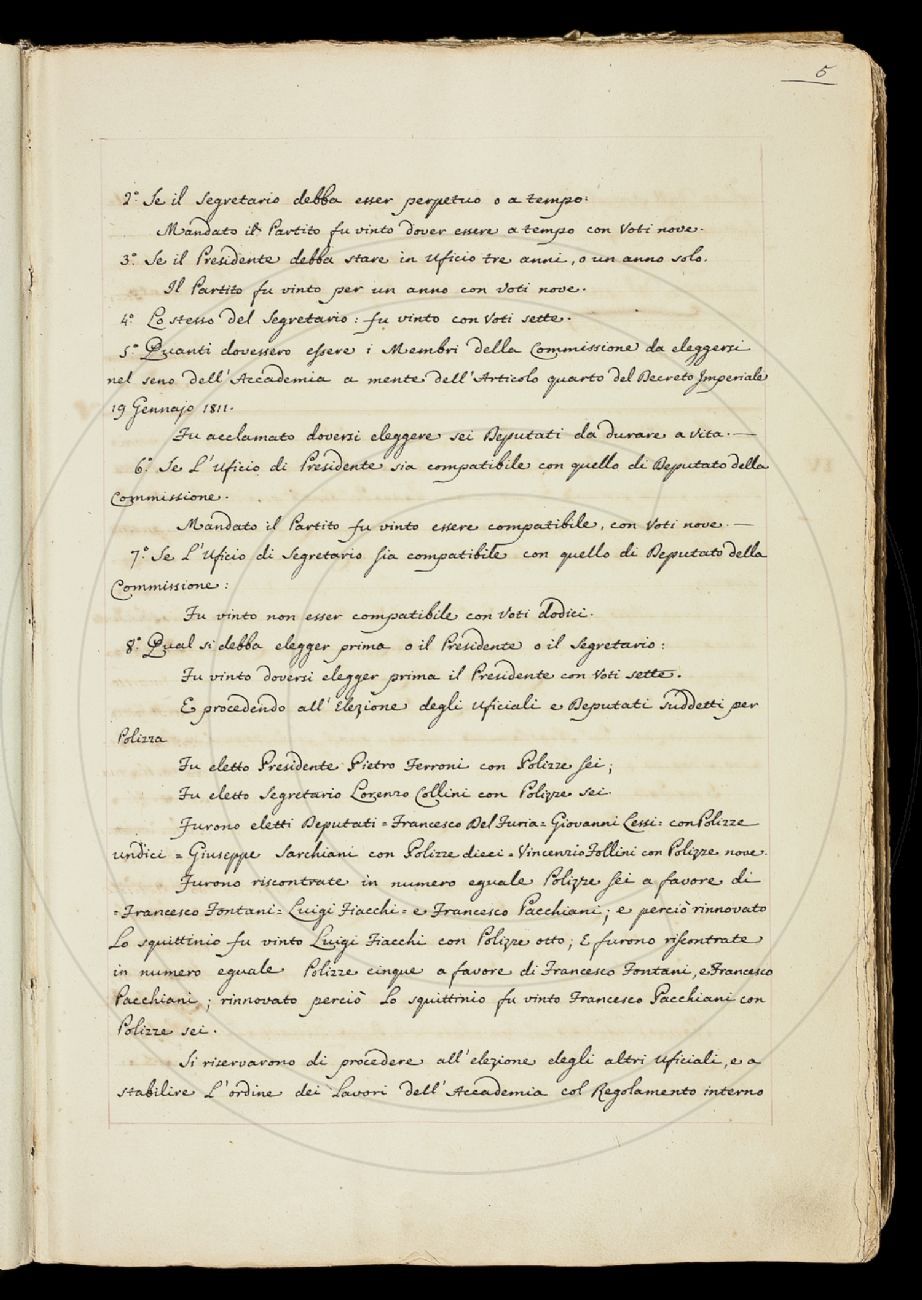 5
2.° Se il Segretario debba esser perpetuo o a tempo:
Mandato il Partito fu vinto dover essere a tempo con Voti nove.
3.° Se il Presidente debba stare in Uficio tre anni, o un anno solo.
Il Partito fu vinto per un anno con Voti nove.
4.° Lo stesso del Segretario: fu vinto con Voti sette.
5.° Quanti dovessero essere i Membri della Commissione da eleggersi
nel seno dell'Accademia a mente dell'Articolo quarto del Decreto Imperiale
19 Gennajo 1811.
Fu acclamato doversi eleggere sei Deputati da durare a vita. —
6.° Se L'Uficio di Presidente sia compatibile con quello di Deputato della
Commissione.
Mandato il Partito fu vinto essere compatibile, con Voti nove. —
7.° Se L'Uficio di Segretario sia compatibile con quello di Deputato della
Commissione:
Fu vinto non esser compatibile con Voti dodici.
8.° Qual si debba elegger prima o il Presidente o il Segretario:
Fu vinto doversi elegger prima il Presidente con Voti sette.
E procedendo all'Elezione degli Uficiali e Deputati suddetti per
Polizza
Fu eletto Presidente Pietro Ferroni con Polizze sei;
Fu eletto Segretario Lorenzo Collini con Polizze sei.
Furono eletti Deputati = Francesco Del Furia = Giovanni Lessi = con Polizze
undici = Giuseppe Sarchiani con Polizze dieci = Vincenzio Follini con Polizze nove.
Furono riscontrate in numero eguale Polizze sei a favore di
= Francesco Fontani = Luigi Fiacchi = e Francesco Pacchiani; e perciò rinnovato
Lo squittinio fu vinto Luigi Fiacchi con Polizze otto; E furono riscontrate
in numero eguale Polizze cinque a favore di Francesco Fontani, e Francesco
Pacchiani; rinnovato perciò Lo squittinio fu vinto Francesco Pacchiani con
Polizze sei.
Si riservarono di procedere all'elezione degli altri Uficiali, e a
stabilire L'ordine dei Lavori dell'Accademia col Regolamento interno